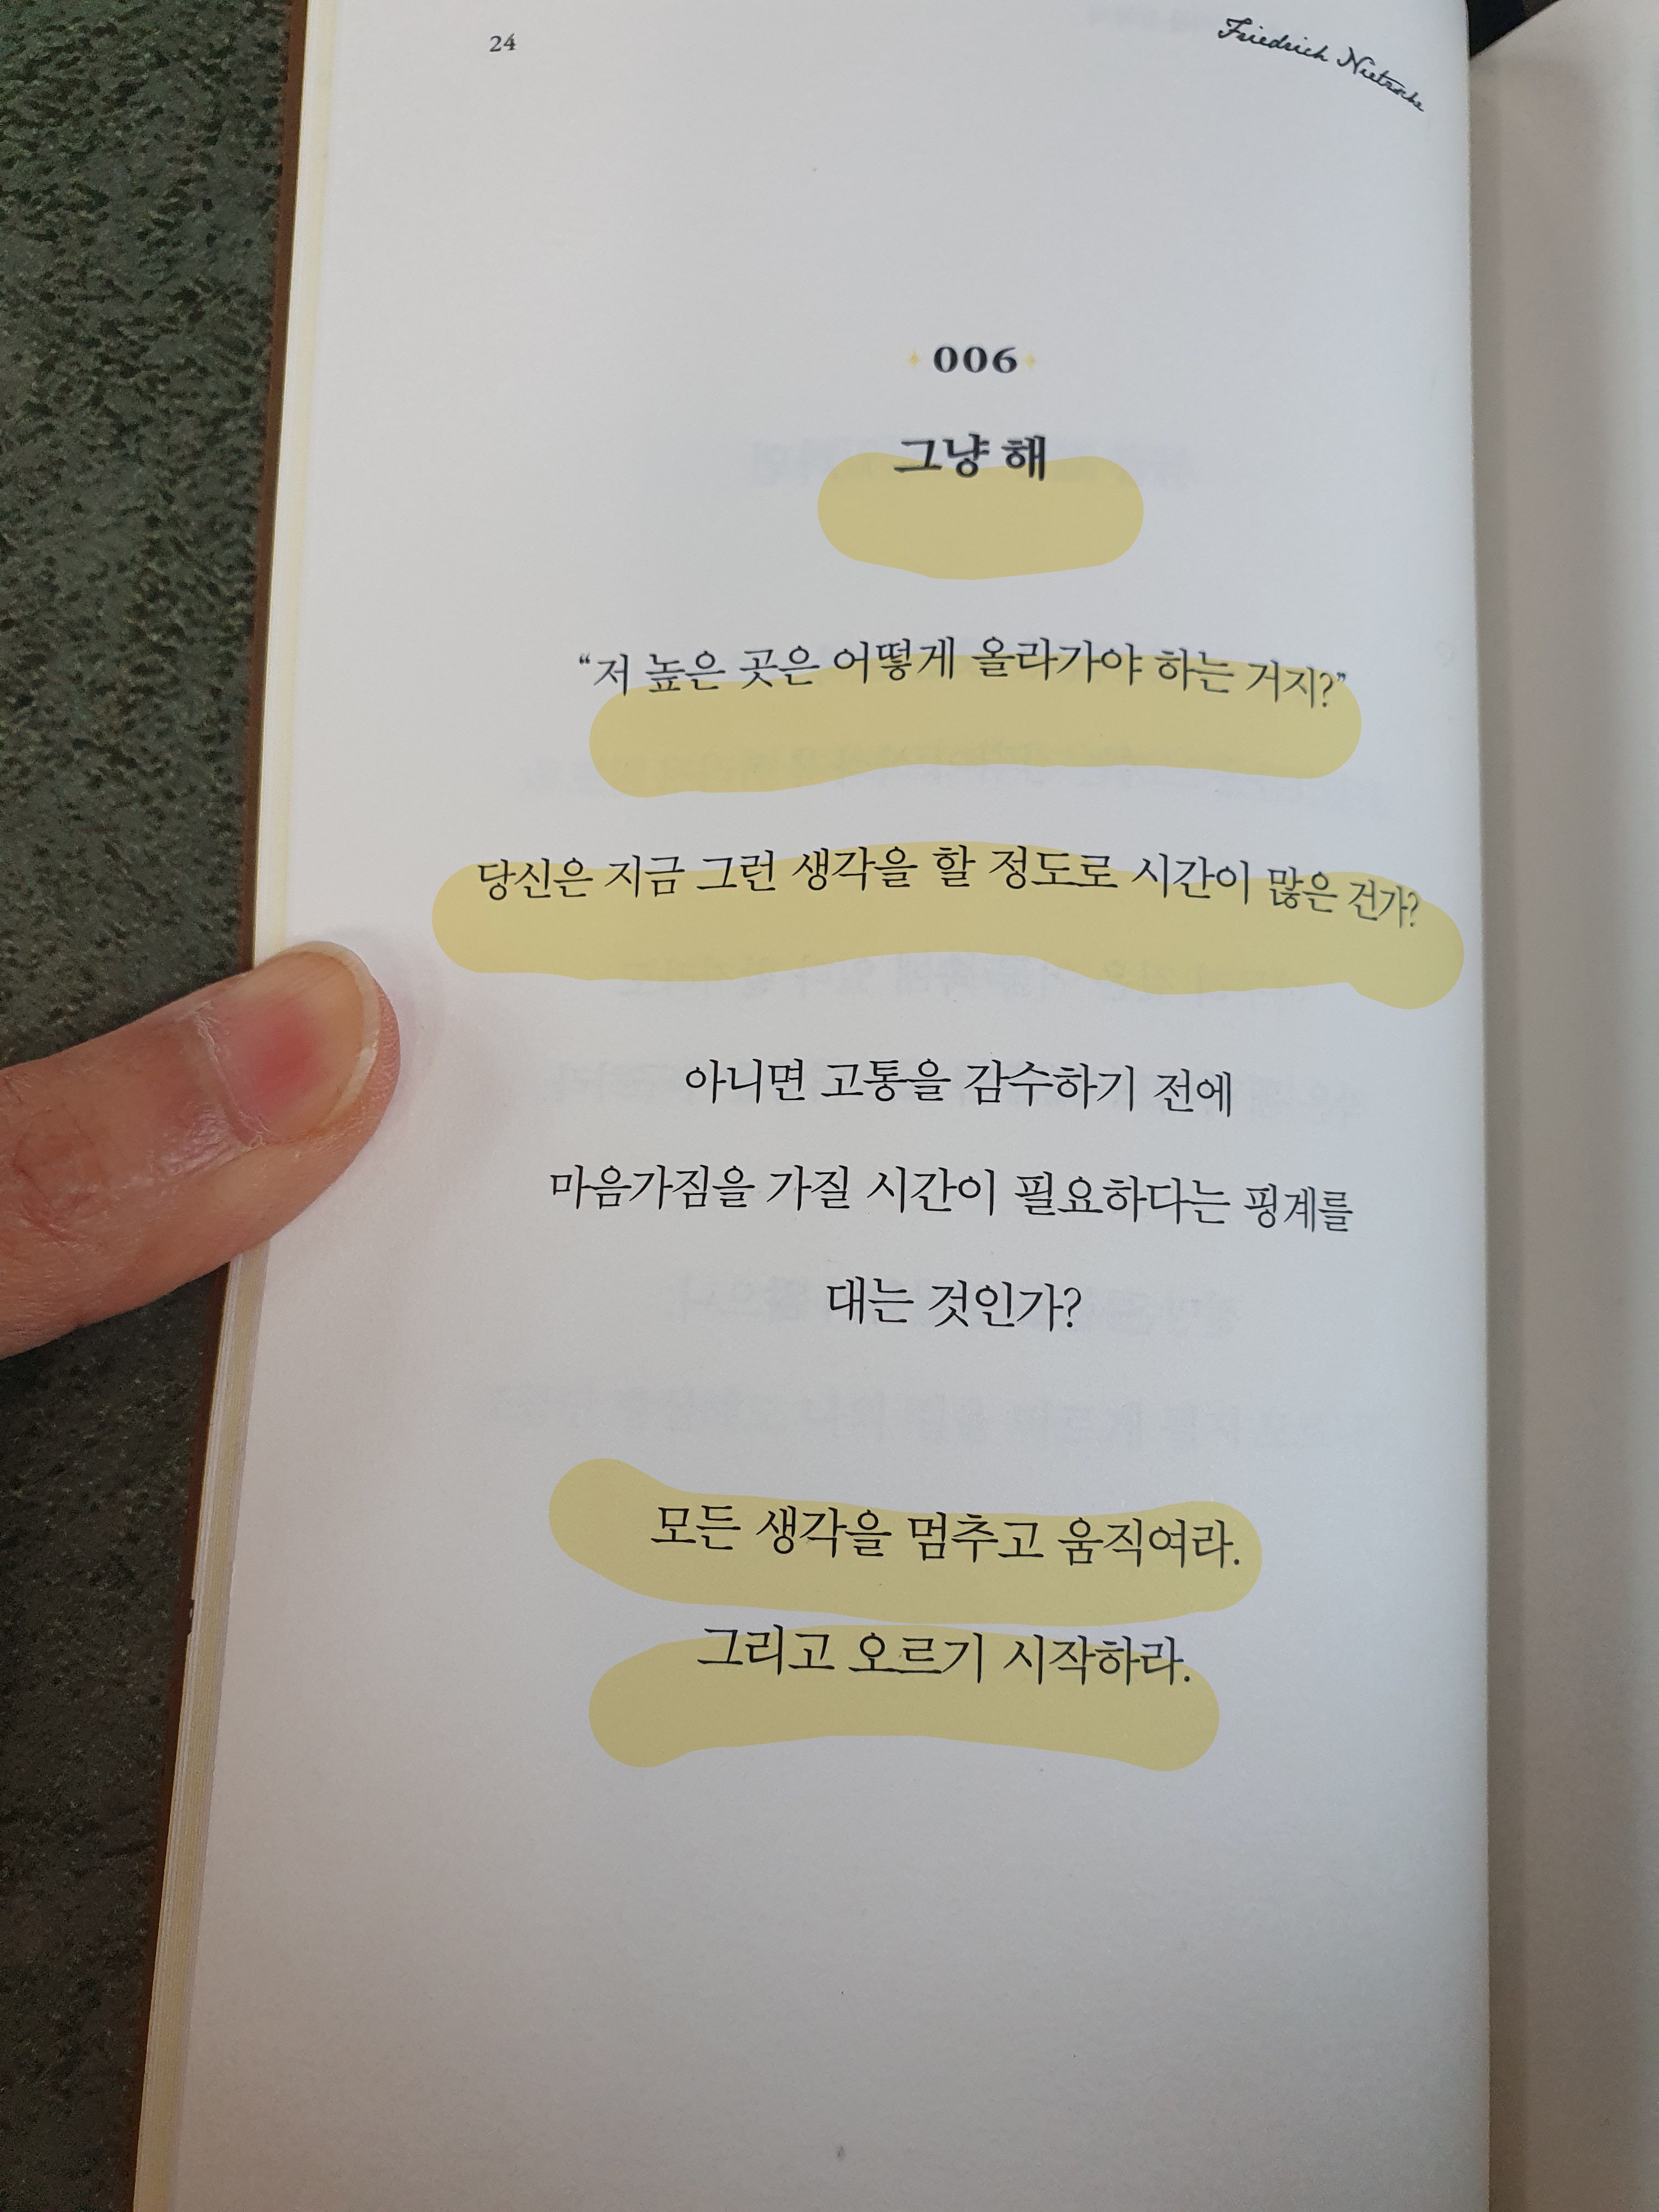 24
Friedrich Nietzsche
006
그냥 해
“저 높은 곳은 어떻게 올라가야 하는 거지?”
당신은 지금 그런 생각을 할 정도로 시간이 많은 건가?
아니면 고통을 감수하기 전에
마음가짐을 가질 시간이 필요하다는 핑계를
대는 것인가?
모든 생각을 멈추고 움직여라.
그리고 오르기 시작하라.